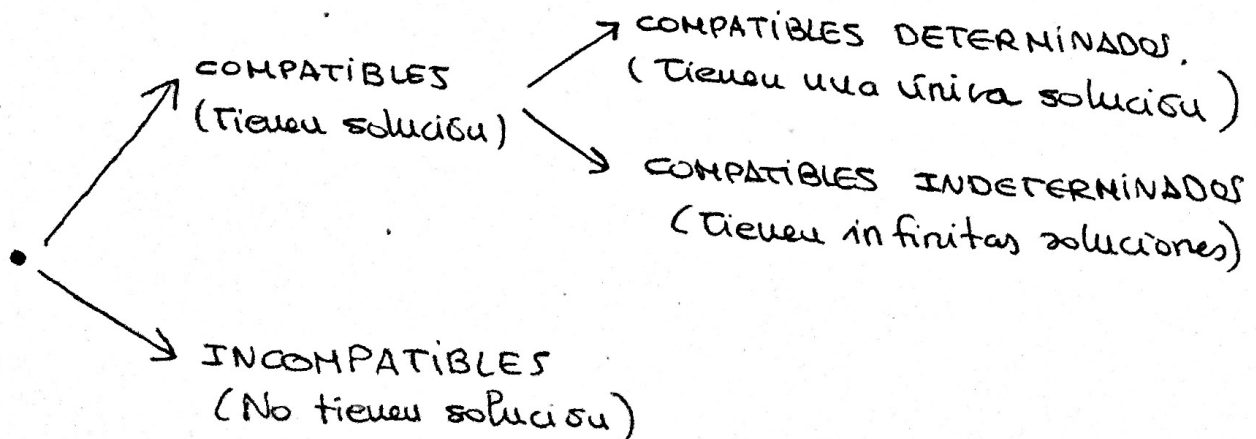 COMPATIBLES
(Tienen solución)
COMPATIBLES DETERMINADOS.
(Tienen una única solución)
COMPATIBLES INDETERMINADOS
(Tienen infinitas soluciones)
INCOMPATIBLES
(No tienen solución)